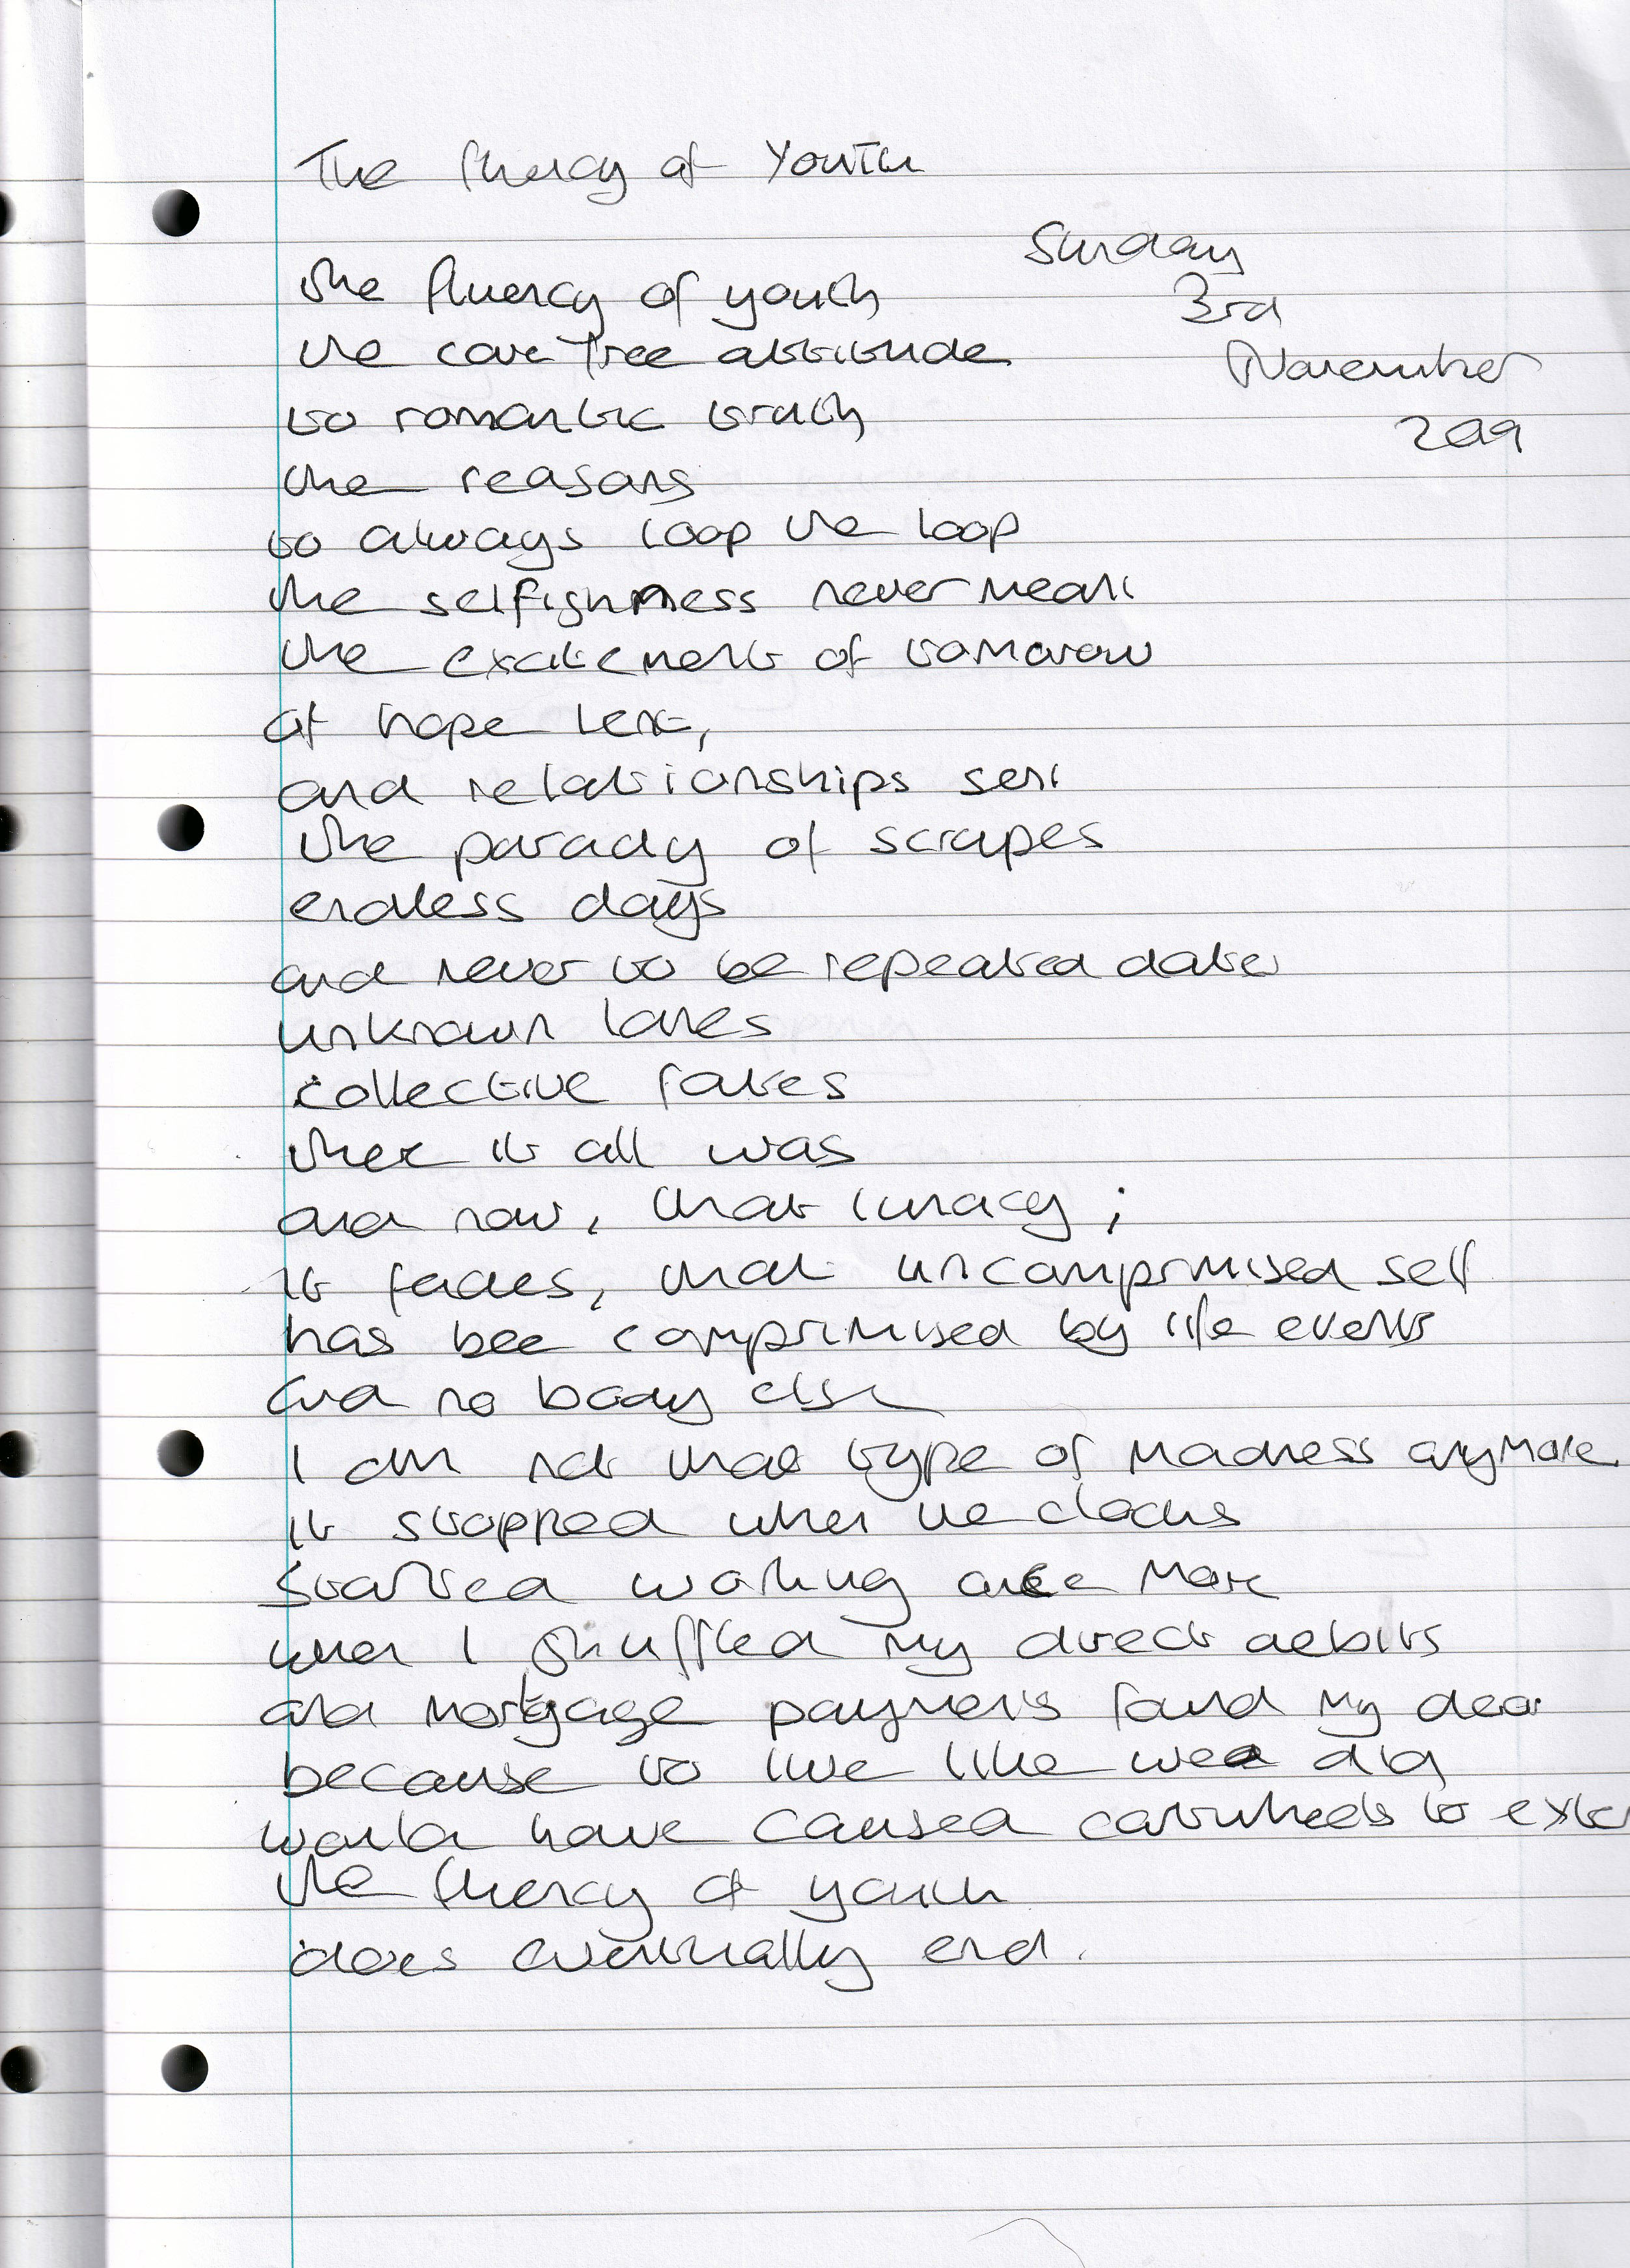 The fluency of Youth
Sunday
3rd
November
2019
the fluency of youth
the care free attitude
to romantic truth
the reasons
to always loop the loop
the selfishness never meant
the excitement of tomorrow
of hope lent,
and relationships sent
the parady of scrapes
endless days
and never to be repeated dates
unknown lanes
collective fates
there it all was
and now, that lunacy;
it fades, that uncomprimised self
has bee comprimised by life events
and no body else
I am not that type of madness anymore
it stopped when the clocks
started working once more
when I shuffled my direct debits
and mortgage payments found my door
because to live like we did
would have caused cartwheels to
the fluency of youth
does eventually end.